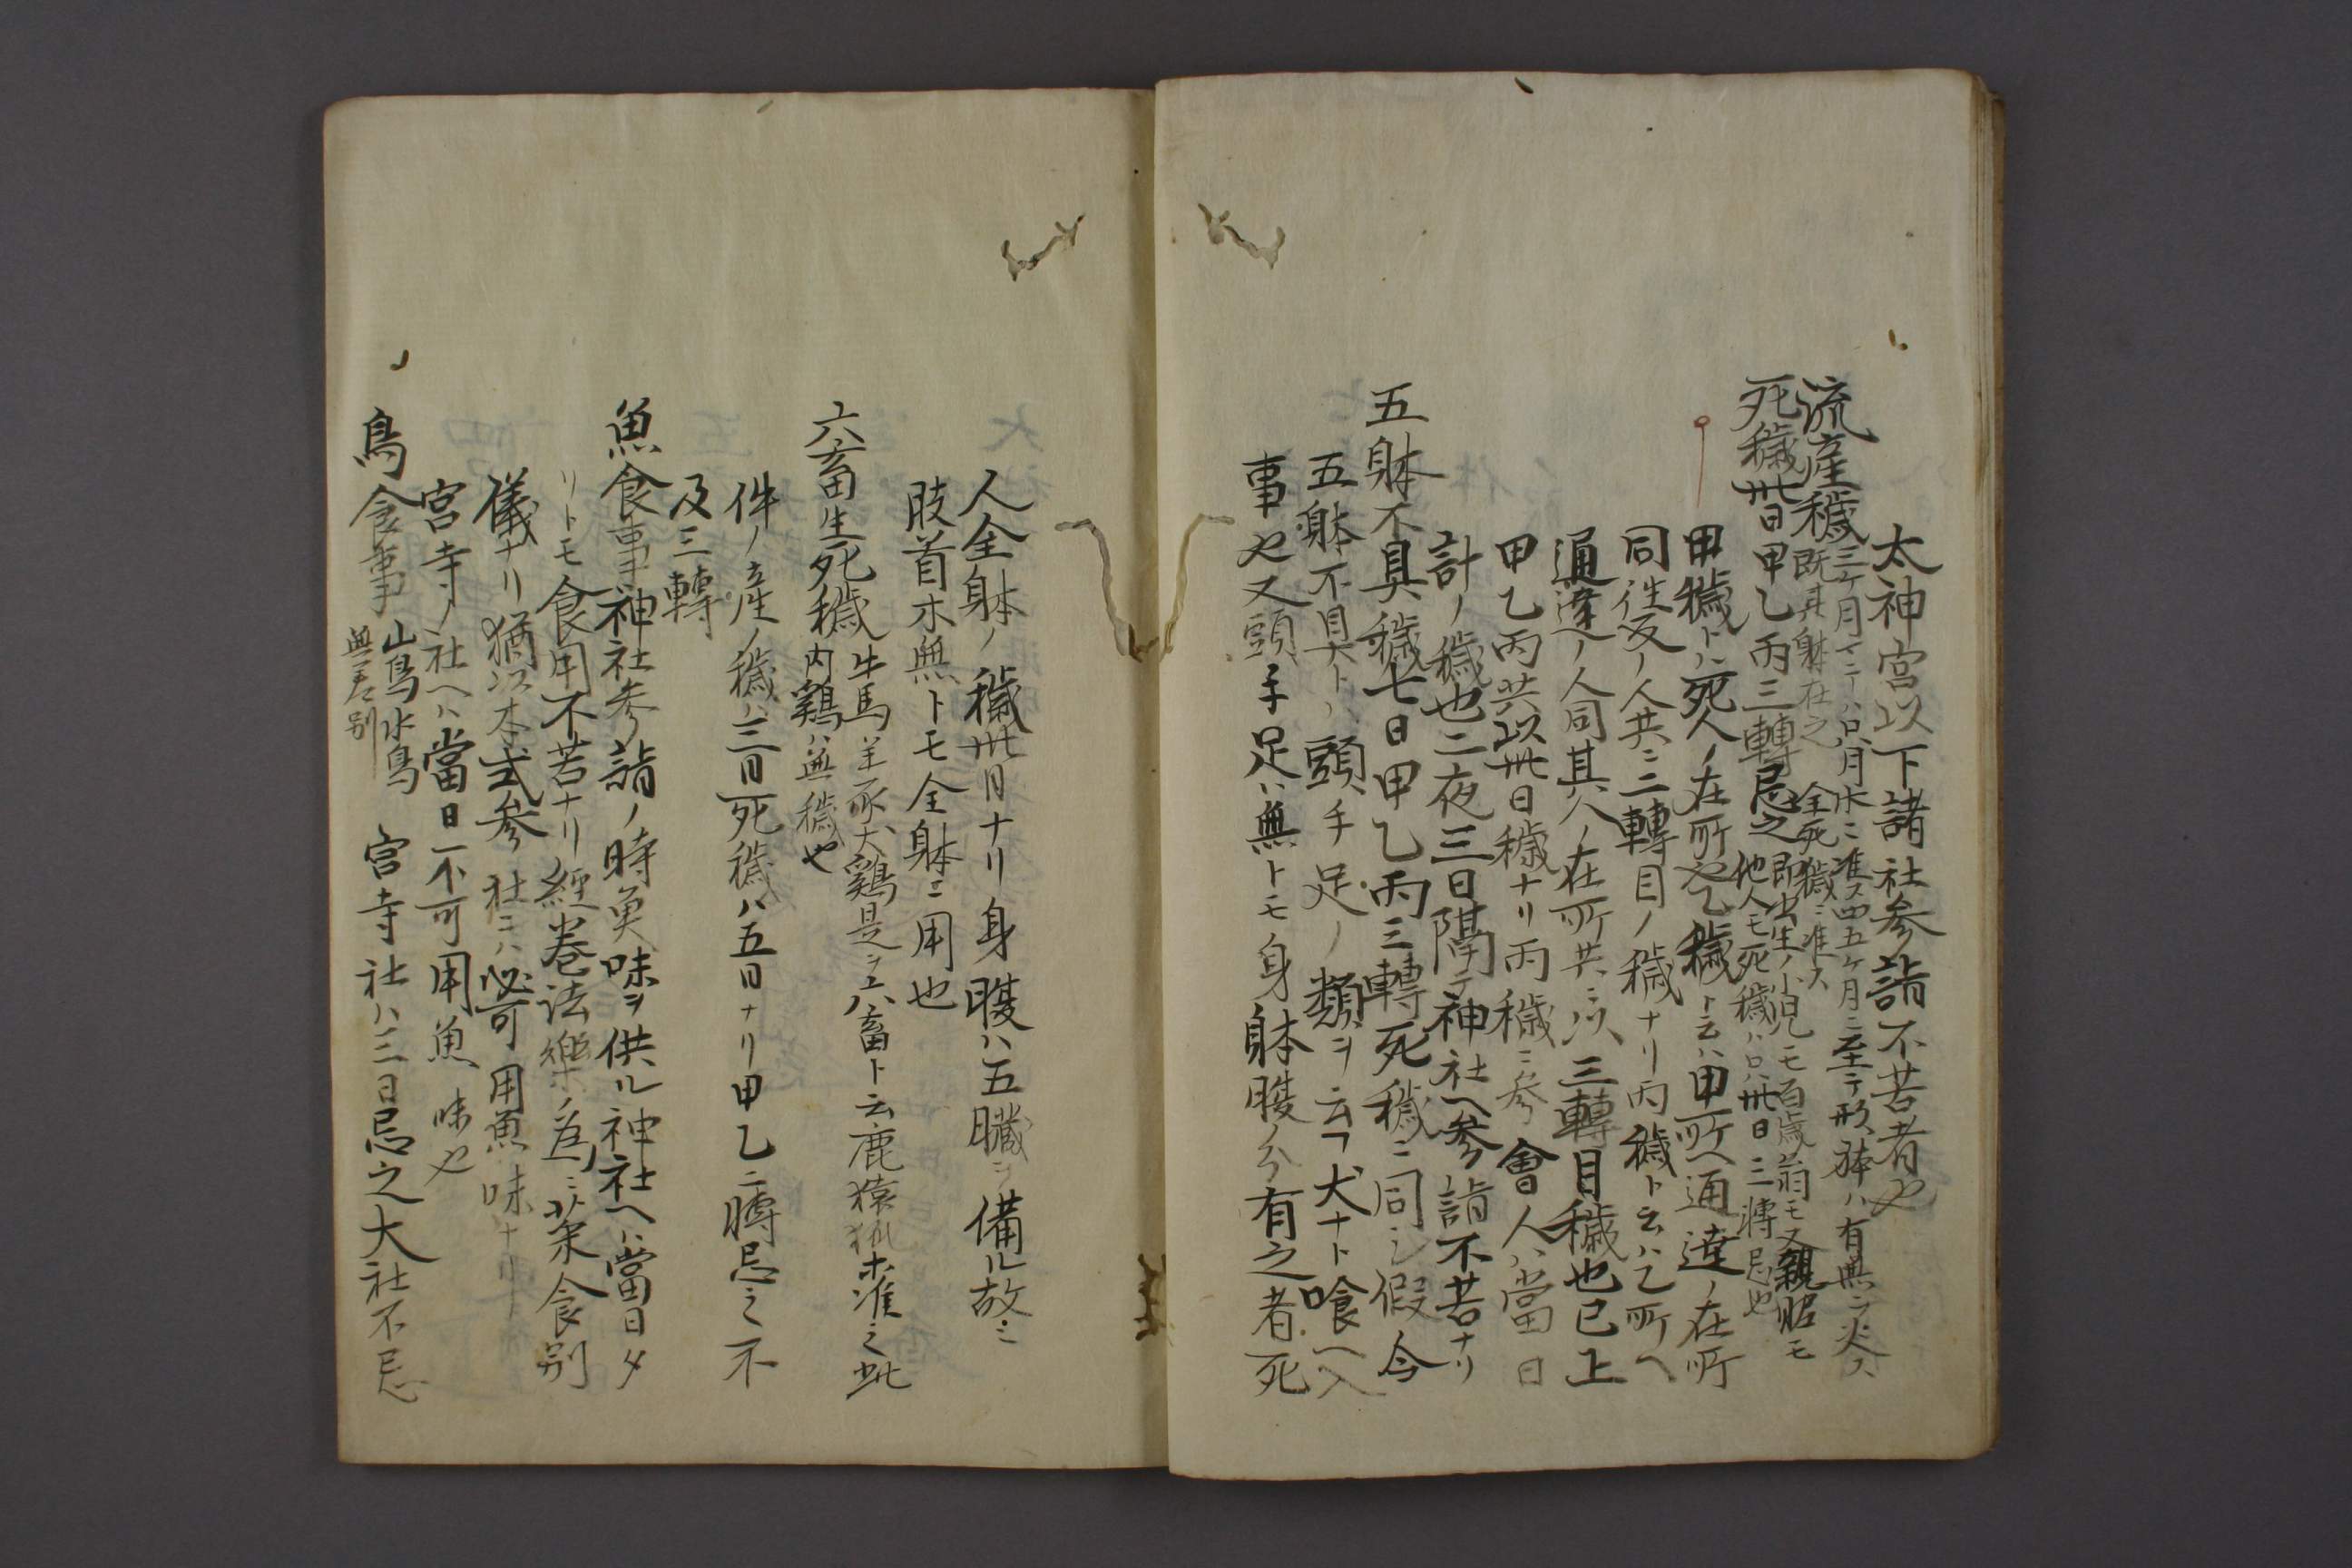 太神宮以下諸社参詣不苦者也
流産穢三ケ月マテハ只月水ニ准ス四五ケ月ニ至テ形躰ハ有無ヲ
既其躰在之全死穢ニ准ス
死穢卅日甲乙丙三轉忌之即出生ノ小児モ百歳翁モ又親昵モ
他人モ死穢ハ只卅日三轉忌也
甲穢トハ死人ノ在所也乙穢ト云ハ甲所ヘ通達ノ在所
同往反ノ人共ニ二轉目ノ穢ナリ丙穢ト云ハ乙所ヘ
通達ノ人同其人ノ在所共ニ以三轉目穢也已上
甲乙丙共以卅日穢ナリ丙穢ニ参會人ハ當日
計ノ穢也二夜三日隔テ神社ヘ参詣不苦ナリ
五躰不具穢七日甲乙丙三轉死穢ニ同シ假令
五躰不具トハ頭手足ノ類ヲ云フ犬ナト喰ヘ入
事也又頭手足ハ無トモ身躰腹ノ分有之者死
人全躰ノ穢卅日ナリ身腹ハ五臓ヲ備ル故ニ
肢首木無トモ全躰ニ用也
六畜生死穢牛馬羊豕犬鶏是ヲ六畜ト云鹿猿狐木准之此
内鶏ハ無穢也
件ノ産ノ穢ハ三日死穢ハ五日ナリ甲乙二轉忌之不
及三轉
魚食事神社参詣ノ時魚味ヲ供ル神社ヘハ當日タ
リトモ食用不苦ナリ經巻法樂ノ為ニ菜食別
儀ナリ猶以本式参社ニハ必可用魚味ナリ
宮寺ノ社ヘハ當日不可用魚味也
鳥食事山鳥水鳥無差別宮寺社ハ三日忌之大社不忌